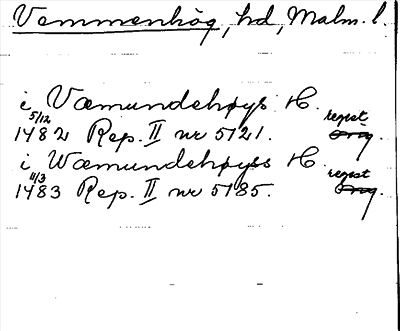 Vemmenhög, hd, Malm. l.
i Væmundehøys H.
5/12 1482 Rep. II nr 5121. regist. orig.
i Wæmundehøyss H.
11/3 1483 Rep. II nr 5185. regist orig.